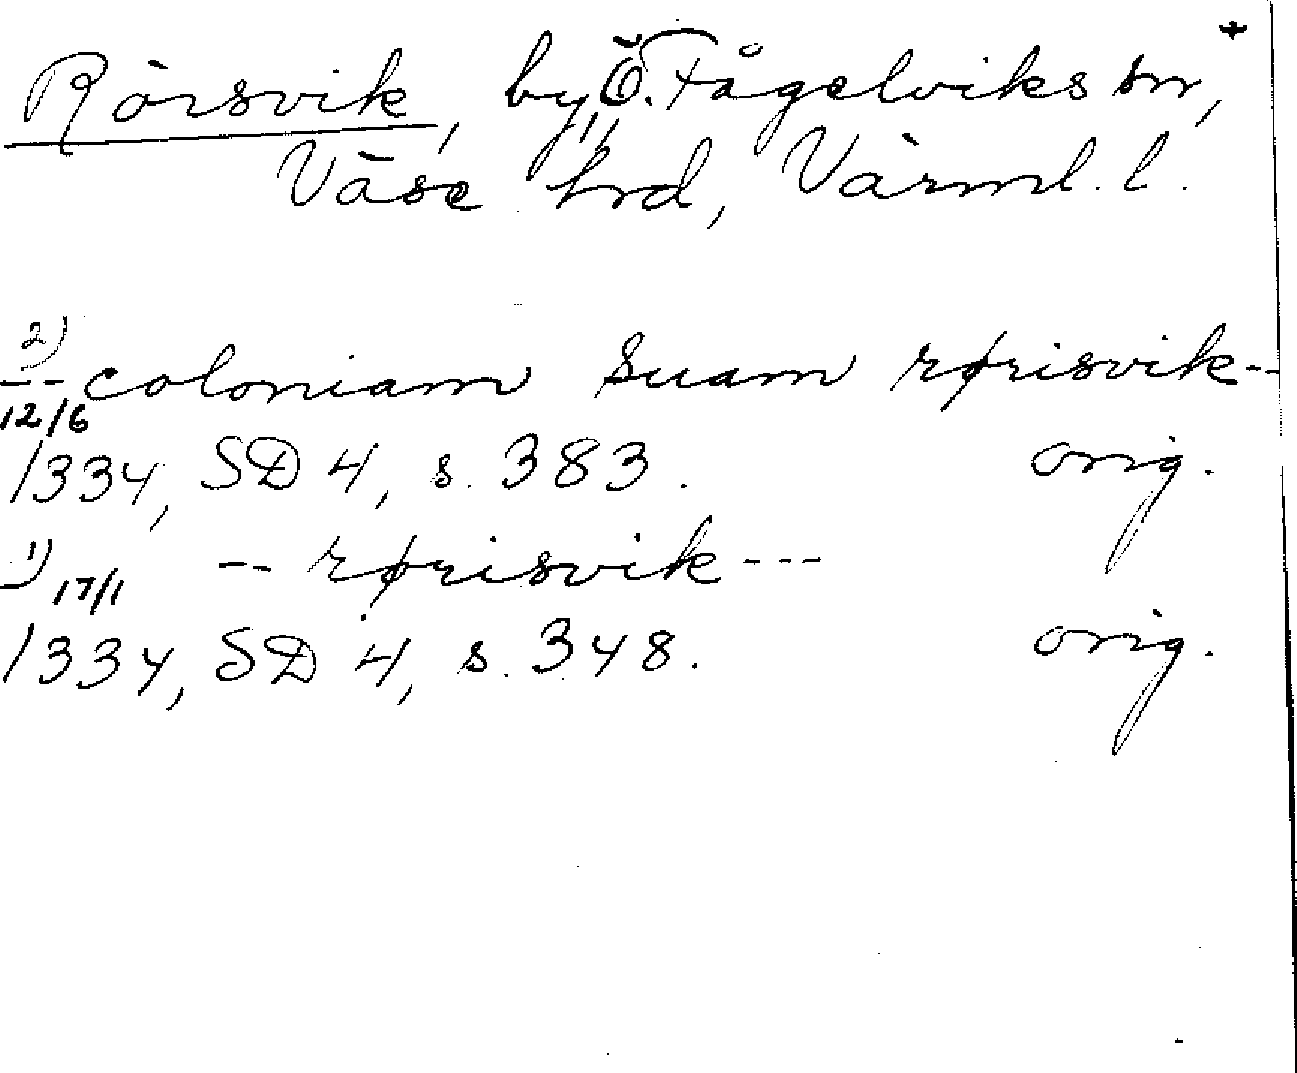 Rörsvik, by, Ö. Fågelviks sn,
Väse hrd, Värml. l.
2)
-- coloniam suam rørisvik --
12/6
1334, SD 4, s. 383. orig.
1) 17/1 -- rørisvik ---
1334, SD 4, s. 348. orig.